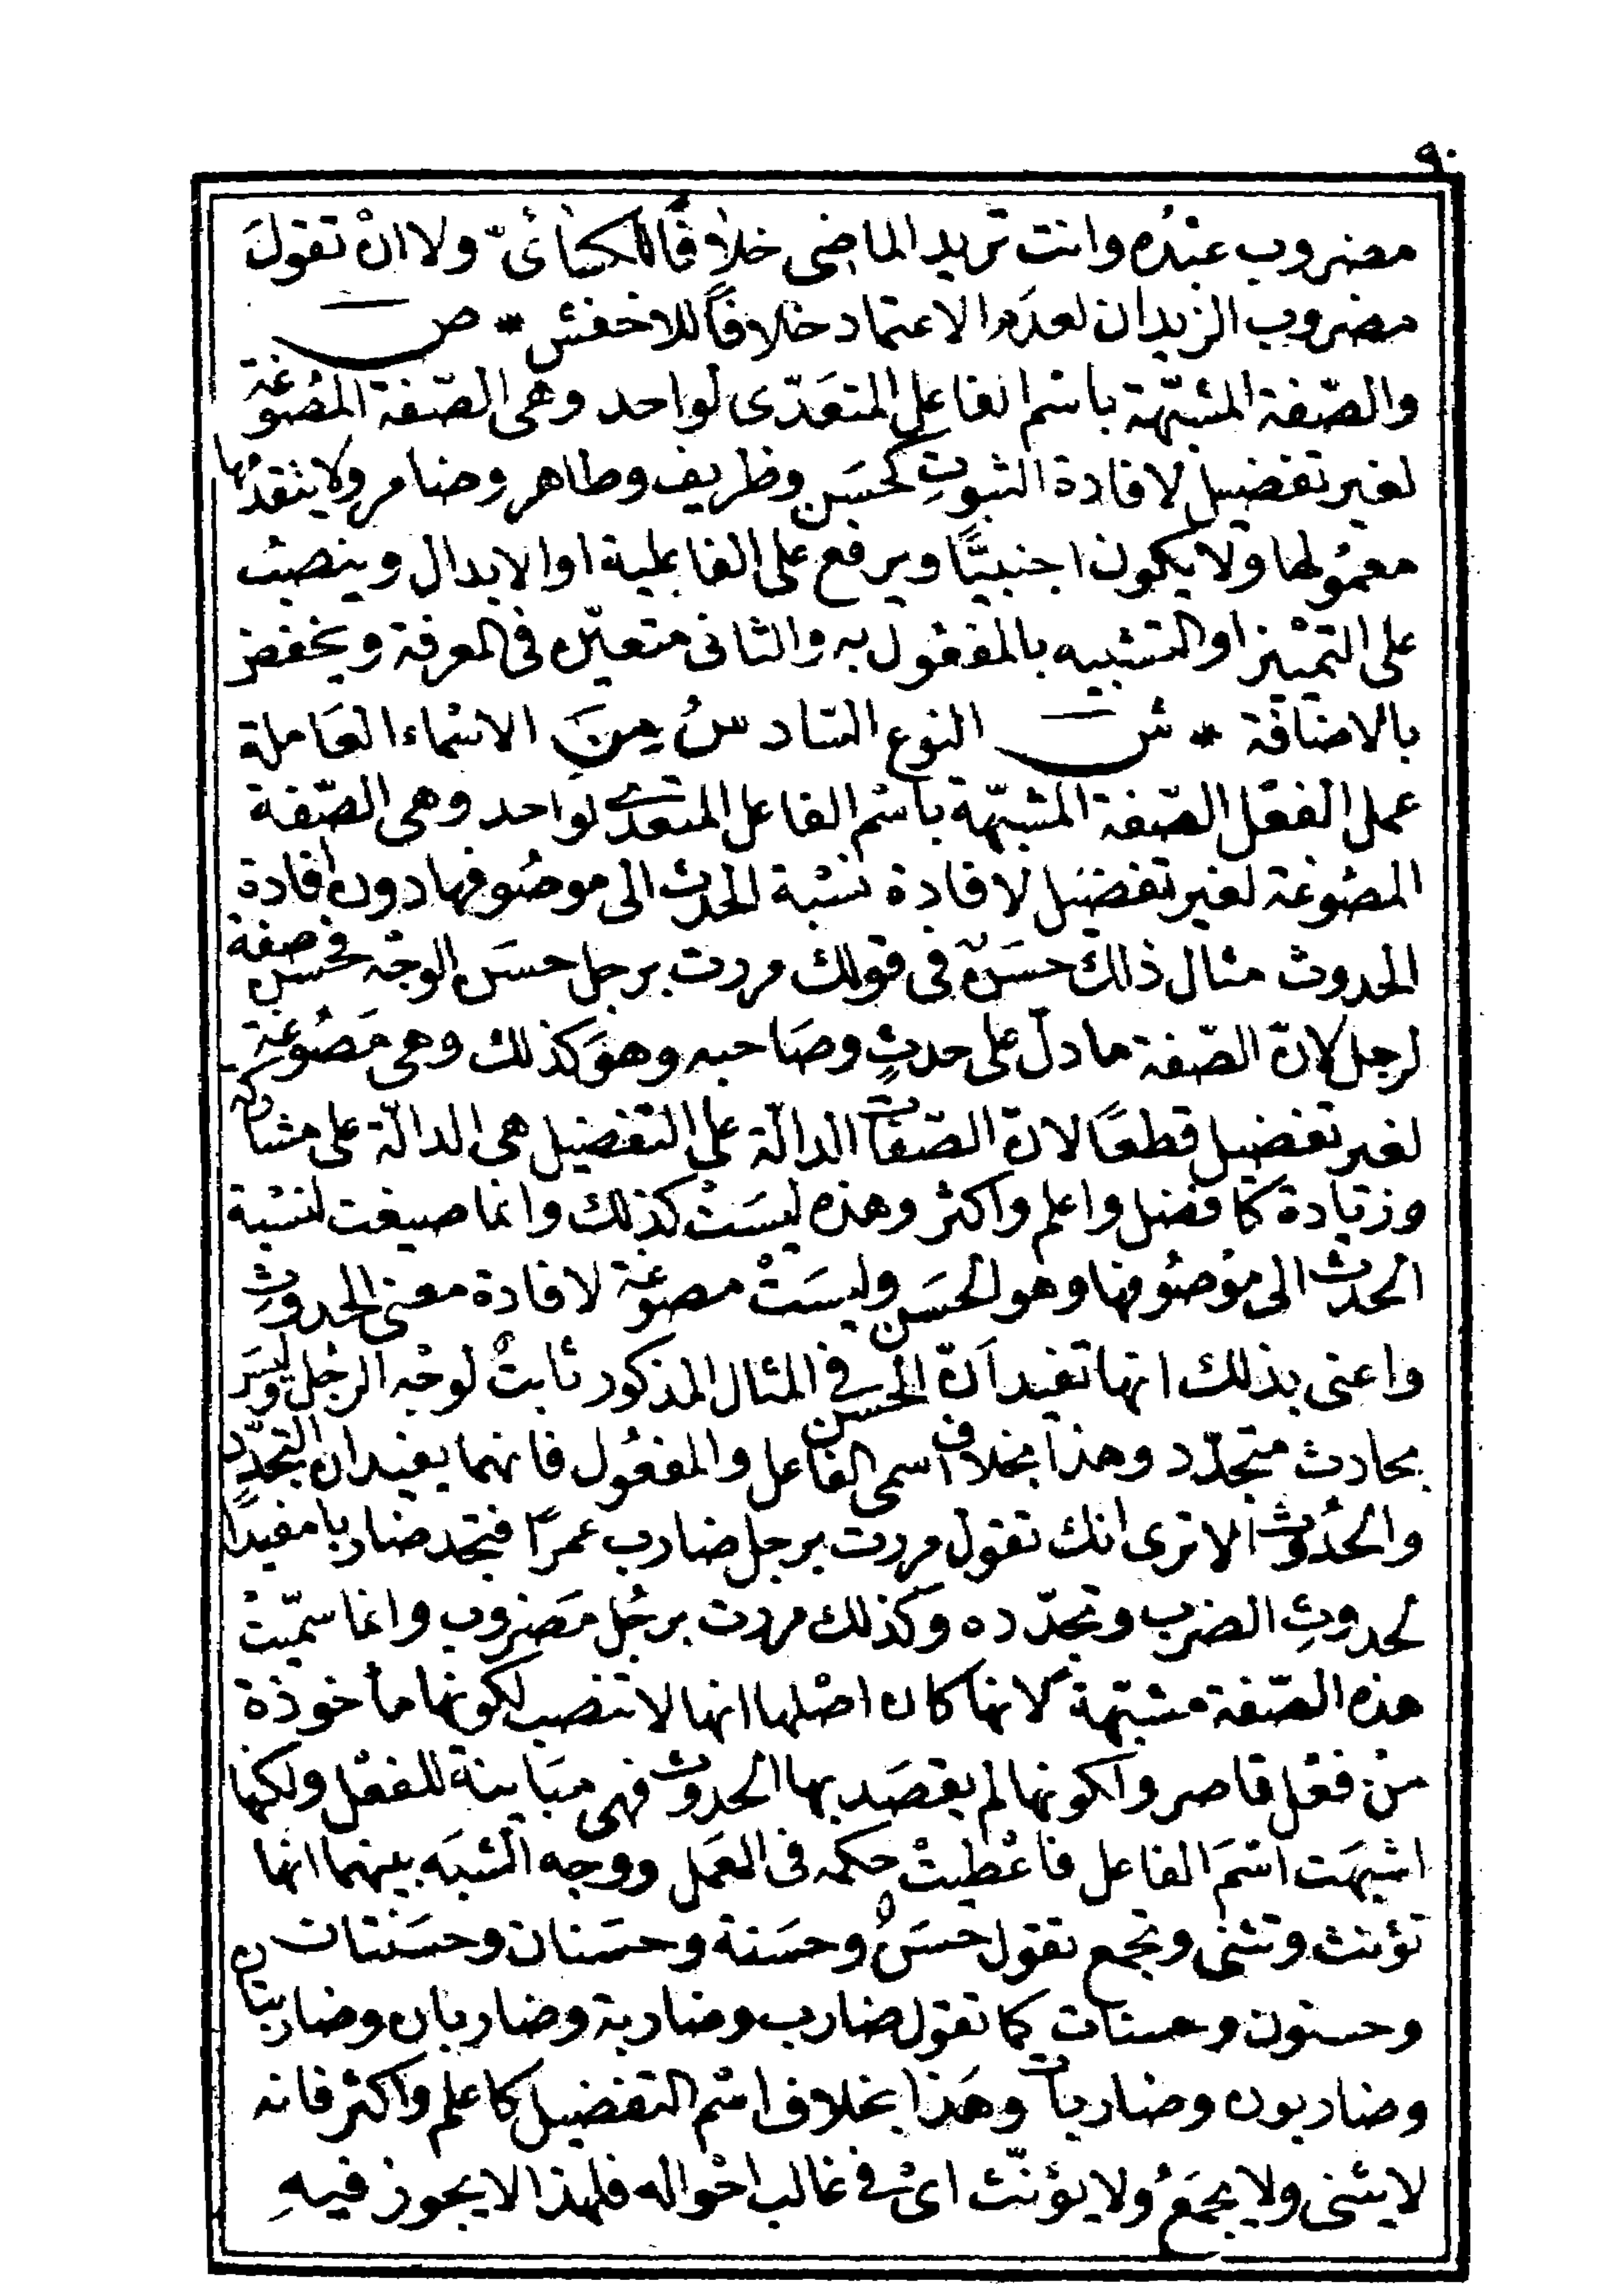 ٩٠
مضروب عبْدُه وانت تريد الماضى خلافًا للكسائىّ ولا انْ تقولَ
مضروب الزيدان لعدَم الاعتماد خلافًا للاخفش * ص
والصّفة المشبّهة باسْم الفاعل المتعَدّى لواحد وهى الصّفة المصُوغة
لغير تفضيل لافادة الثبوتِ كحسَن وظريف وطاهر وضامر ولا يتقدّمُها
معمُولها ولا يكون اجنبيًّا ويرفع على الفاعلية او الابدال وينصبُ
على التمْييز او التشبيه بالمفعُول به والثانى متعيّن فى المعرفة ويخفض
بالاضافة * ش النوع السّادسُ مِنَ الاسْماء العَاملة
عمل الفعْل الصّفة المشبّهة باسْم الفاعل المتعدّى لواحد وهى الصّفة
المصُوغة لغير تفضيل لافادة نسْبة الحدث الى موصُوفها دون افادة
الحدوث مثال ذالك حسَنٌ فى قولك مررت برجل حسَن الوجْه فحسن صفة
لرجل لانّ الصّفة ما دلّ على حدثٍ وصَاحبه وهوَ كذلك وهى مَصُوغة
لغير تفضيل قطعًا لانّ الصّفات الدالّة على التفضيل هى الدالّة على مشاركه
وزيادة كافضل واعلم واكثر وهذه ليسَتْ كذلك وانما صيغت لنسْبة
الحدث الى موْصُوفها وهو الحسَن وليسَتْ مصوغة لافادة معنى الحدوثِ
واعنى بذلك انها تفيد اَنّ الحسن فى المثال المذكور ثابتٌ لوجْه الرجُل وليسَ
بحادث متجدّد وهذا بخلاف اسمى الفاعل والمفعُول فانهما يفيدان التجدّد
والحُدُوث الا ترى انك تقول مررت برجل ضارب عمرًا فتجد ضاربا مفيدًا
لحدوثِ الضرب وتجدّده وكذلك مررت برجُل مَضروب وانما سمّيتْ
هذه الصّفة مشبّهة لانها كان اصْلها انها لا تنصب لكونها مأخوذة
منْ فعْل قاصر ولكونها لم يقصَد بها الحدوث فهى مبَاينة للفعْل ولكنها
اشبهَت اسْمَ الفاعل فاعْطيتْ حكمه فى العمَل ووجه الشبَه بينهما انها
تؤنث وتثنى وتجمع تقول حسَنٌ وحسَنة وحسَنان وحسَنتان
وحسنون وحسنات كما تقول ضارب وضاربة وضاربان وضاربتان
وضاربون وضاربات وهَذا بخلاف اسْم التفضيل كاعلم واكثر فانه
لا يثنى ولا يجمَعُ ولا يؤنّث اىْ فى غالب احْواله فلهذا لا يجوز فيهِ